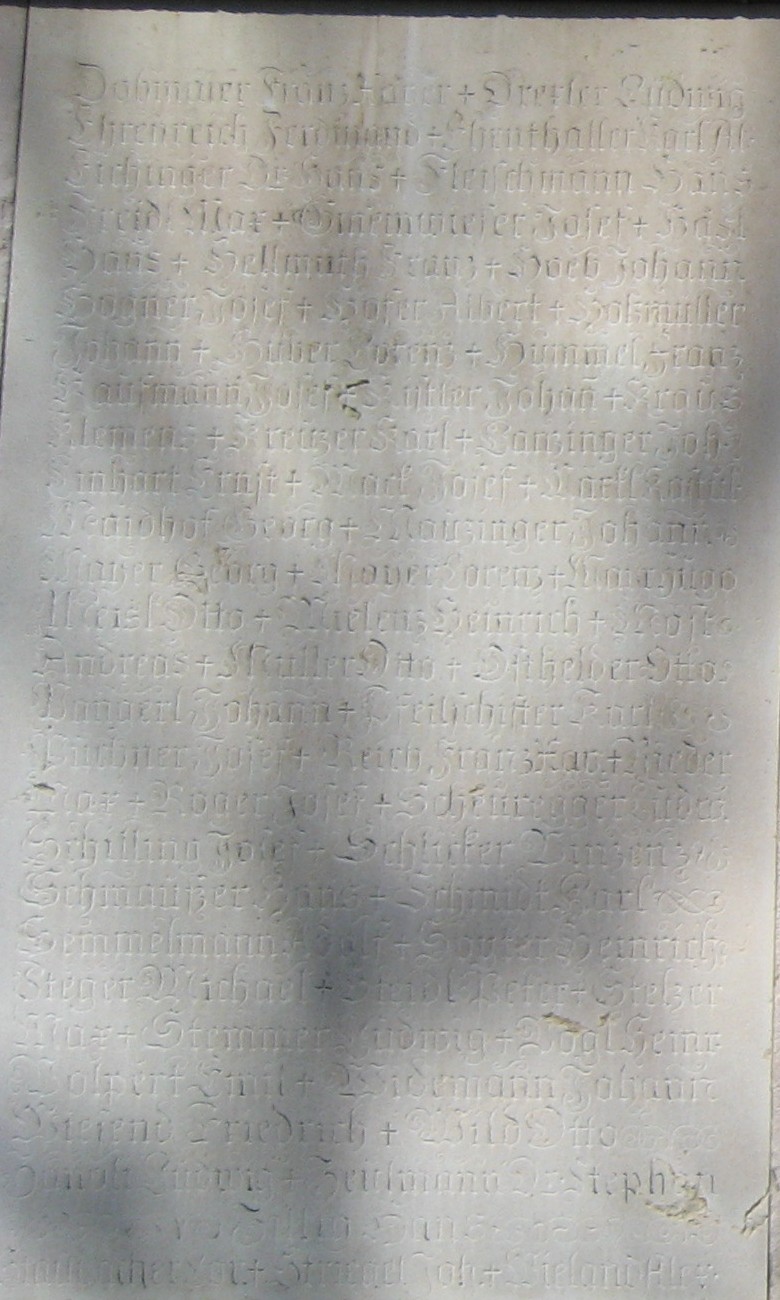 Dobmaier Franz Xaver + Drexler Ludwig
Ehrenreich Ferdinand + Ehrnthaller Karl Al-
Eichinger Dr Hans + Fleischmann Hans
Freidl Max + Gmeinwieser Josef + Hasl
Hans + Hellmuth Franz + Hoeb Johann
Hogner Josef + Hofer Albert + Holzmüller
Johann + Huber Lorenz + Hummel Franz
Kaufmann Josef + Kistler Johañ + Kraus
Klemens + Kreuzer Karl + Lanzinger Joh-
Linhart Ernst + Mack Josef +
Maidhof Georg + Mauzinger Johann
Mayer Georg + Mayer Lorenz + Mayr Hugo
Meisl Otto + Mielenz Heinrich + Most
Andreas + Müller Otto + Osthelder Otto
Pangerl Johann + Pfeilschifter Karl
Puchner Josef + Reich Franz Xav. + Rieder
Max + Roger Josef + Scheuregger Ludw.
Schilling Josef + Schlicker Vinzenz
Schmaußer Hans + Schmidt Karl
Semmelmann Adolf + Sputer Heinrich
Steger Michael + Steidl Peter + Stelzer
Max + Stemmer Ludwig + Vogl Heinr
Wolpert Emil + Widemann Johann
Wiesend Friedrich + Wild Otto
Ludwig + Zeulmann Dr Stephan
Zillig Hans
Joh + Wieland Alex